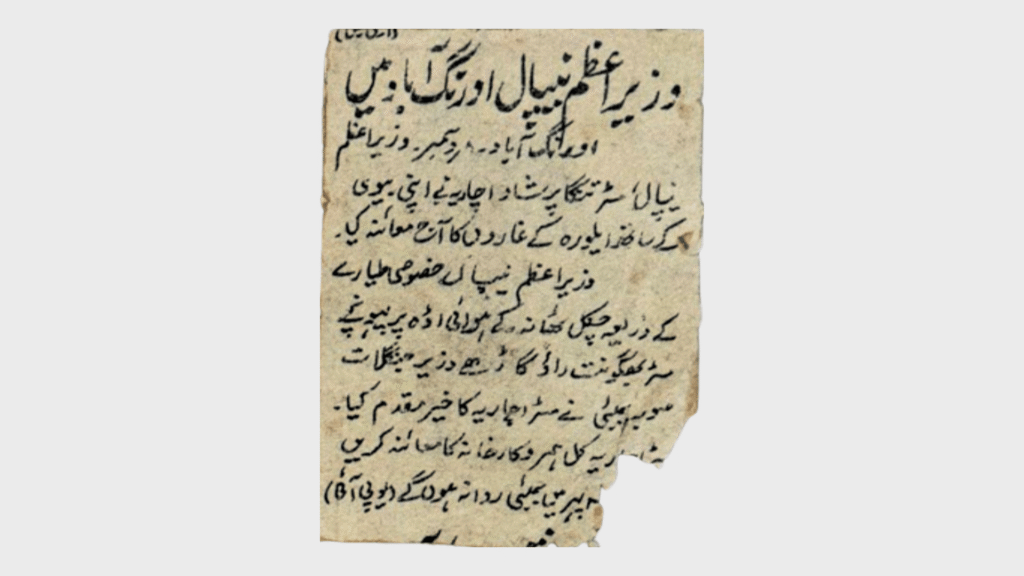 وزیر اعظم نیپال اورنگ آباد میں
اورنگ آباد۔ دسمبر۔ وزیر اعظم
نیپال مسٹر ٹنکا پرشاد اچاریہ نے اپنی بیوی
کے ساتھ ایلورہ کے غاروں کا آج معائنہ کیا۔
وزیر اعظم نیپال خصوصی طیارے
کے ذریعہ چکل تھانہ کے ہوائی اڈہ پر پہونچے
مسٹر بھگونت راؤ گاڑھے وزیر جنگلات
صوبہ بمبئی نے مسٹر اچاریہ کا خیر مقدم کیا۔
کل ہمرو کارخانہ کا معائنہ کریں
بمبئی روانہ ہوں گے (یو پی آئی)